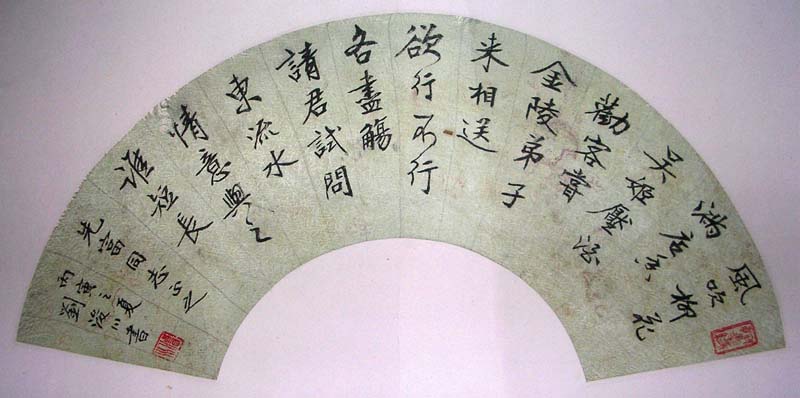 風吹柳花
滿店香
吳姬壓酒
勸客嘗
金陵弟子
来相送
欲行不行
各盡觴
請君試問
東流水
情意與之
誰短長
先富同志正之
丙寅之夏
劉浚川書